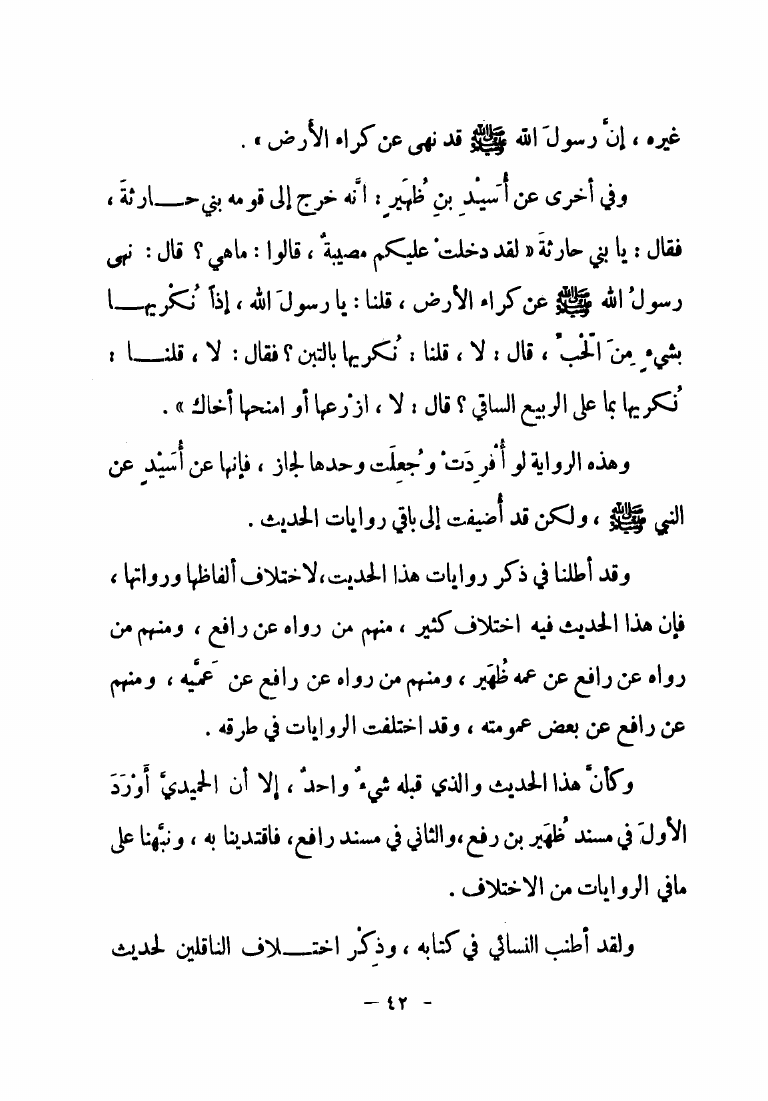 غيره ، إنَّ رسولَ الله ﷺ قد نهى عن كراء الأرض » .
وفي أخرى عن أُسَيْدِ بنِ ظُهَيرٍ : انَّه خرج إلى قومه بني حــارثةَ ،
فقال : يا بني حارثةَ « لقد دخلتْ عليكم مصيبةٌ ، قالوا : ماهي ؟ قال : نهى
رسولُ الله ﷺ عن كراء الأرض ، قلنا : يا رسولَ الله ، إذاً نُكْريهــا
بشيءٍ مِنَ الْحَبِّ ، قال : لا ، قلنا : نُكريها بالتبن ؟ فقال : لا ، قلنــا :
نُكريها بما على الربيع الساقي ؟ قال : لا ، ازْرعها أو امنحها أخاك » .
وهذه الرواية لو أُفْرِدَتْ وجُعِلَت وحدها لجاز ، فإنها عن أُسَيْدٍ عن
النبي ﷺ ، ولكن قد أُضيفت إلى باقي روايات الحديث .
وقد أطلنا في ذكر روايات هذا الحديت،لاختلاف ألفاظها ورواتها ،
فإن هذا الحديث فيه اختلاف كثير ، منهم من رواه عن رافع ، ومنهم من
رواه عن رافع عن عمه ظُهَير ، ومنهم من رواه عن رافع عن عَمَّيه ، ومنهم
عن رافع عن بعض عمومته ، وقد اختلفت الروايات في طرقه .
وكأنَّ هذا الحديث والذي قبله شيءٌ واحدٌ ، إلا أن الحميديَّ أَوْرَدَ
الأولَ في مسند ظُهَير بن رفع،والثاني في مسند رافع، فاقتدينا به ، ونبَّهنا على
مافي الروايات من الاختلاف .
ولقد أطنب النسائي في كتابه ، وذِكْر اختــلاف الناقلين لحديث
- ٤٢ -